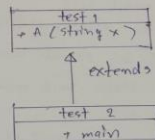 test 1
+ A (string x)
extends
test 2
+ main